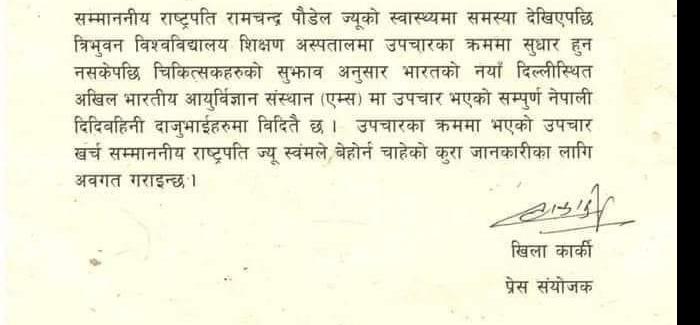 सम्माननीय राष्ट्रपति रामचन्द्र पौडेल ज्यूको स्वास्थ्यमा समस्या देखिएपछि
त्रिभुवन विश्वविद्यालय शिक्षण अस्पतालमा उपचारका क्रममा सुधार हुन
नसकेपछि चिकित्सकहरुको सुझाव अनुसार भारतको नयाँ दिल्लीस्थित
अखिल भारतीय आयुर्विज्ञान संस्थान (एम्स) मा उपचार भएको सम्पुर्ण नेपाली
दिदिवहिनी दाजुभाईहरुमा विदितै छ । उपचारका क्रममा भएको उपचार
खर्च सम्माननीय राष्ट्रपति ज्यू स्वंमले बेहोर्न चाहेको कुरा जानकारीका लागि
अवगत गराइन्छ ।
खिला कार्की
प्रेस संयोजक